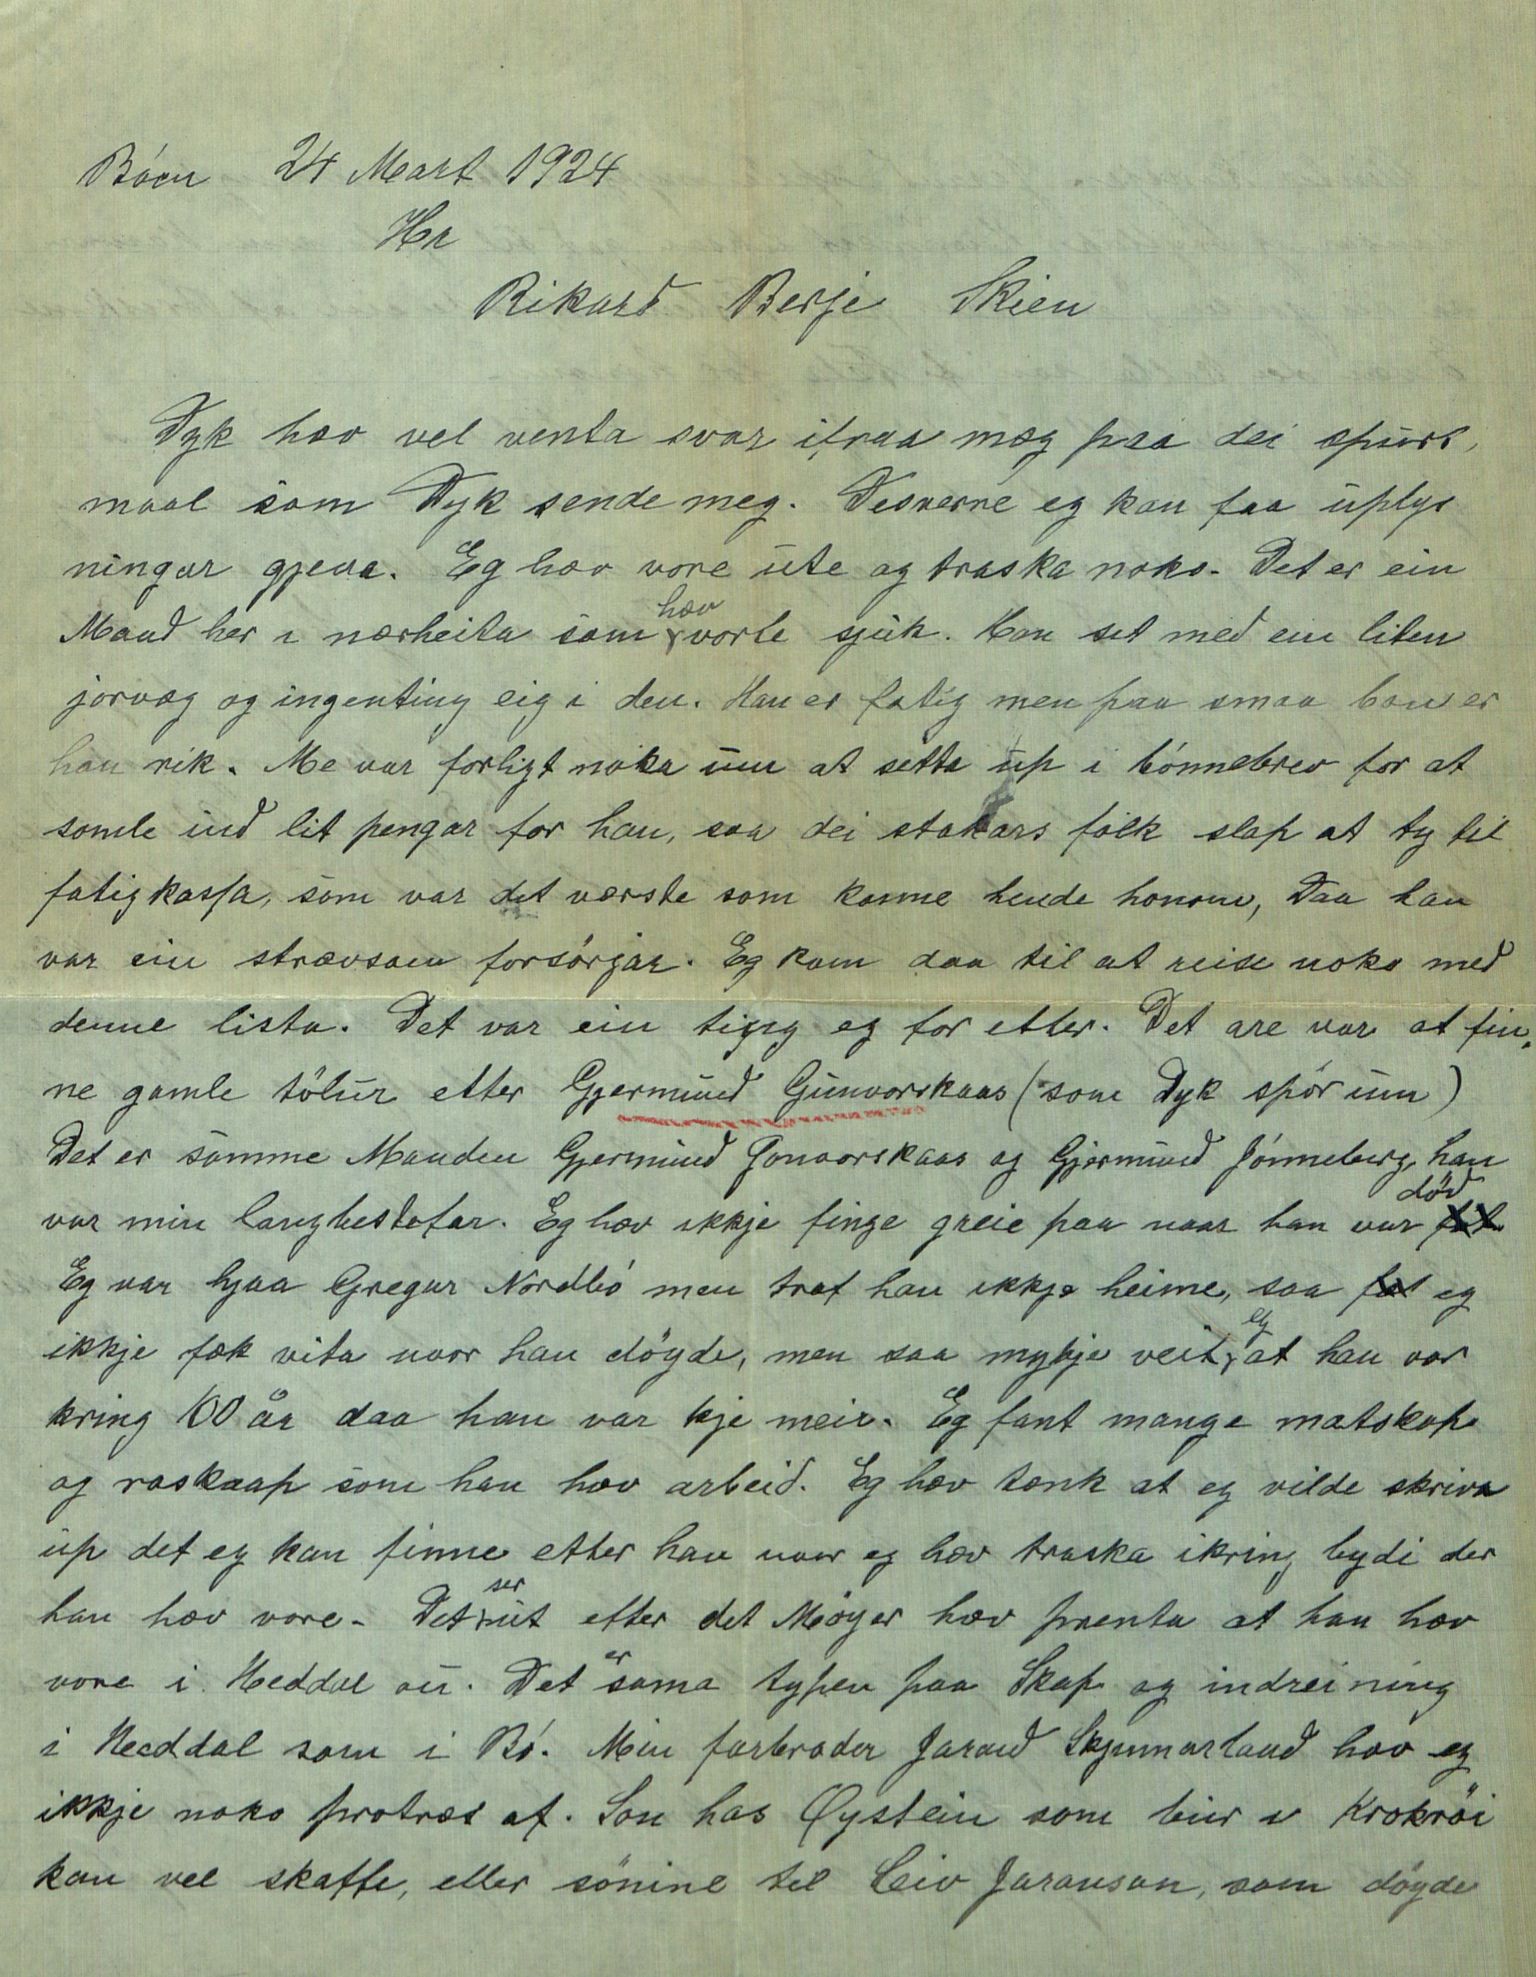 Bóen 24 Mart 1924
Hr
Rikard Berje Skien
Dyk hæv vel venta svar ifraa mæg paa dei spurs,
maal som Dyk sende meg. Desverre eg kan faa uplys
ningar gjeva. Eg hæv vore ute og traska noko. Det er ein
Mand her i nærheita som hæv vorte sjuk. Han set med ein liten
jorvæg og ingenting eig i den. Han er fatig men paa smaa bon er
han rik. Me var forligt noka um at setta up i bónnebrev for at
samle ind lit pengar for han, saa dei stakars folk slap at ty til
fatigkassa, som var det værste som kunne hende honom, Daa han
var ein strævsam forsörjar. Eg kom daa til at reise noko med
denne lista. Det var ein ting eg for etter. Det are var at fin,
ne gamle tölur etter Gjermund Gunvorskaas (som Dyk spór um)
Det er samme Manden Gjermund Gonvorskaas og Gjermund Jónneberg, han
var min langbestefar. Eg hæv ikkje finge greie paa naar han var död
Eg var hjaa Gregar Nordbó men traf han ikkje heime, saa eg
ikkje fæk vita naar han döyde, men saa mykje veit eg at han var
kring 100 år daa han var kje meir. Eg fant mange matskap
og roskaap som han hæv arbeid. Eg hæv tænk at eg vilde skriva
up det eg kan finne etter han naar eg hæv traska ikring bydi der
han hæv vore. Det ser ut efter det Möyer hæv prenta at han hæv
vore i Heddal au. Det er sama typen paa Skap og indreining
i Heddal som i Bó. Min farbroder Jaraud Skjumarland hæv eg
ikkje noko protræt af. Son has Øystein som bur i Krokröi
kan vel skaffe, eller sönine tel Leiv Jarausan, som döyde